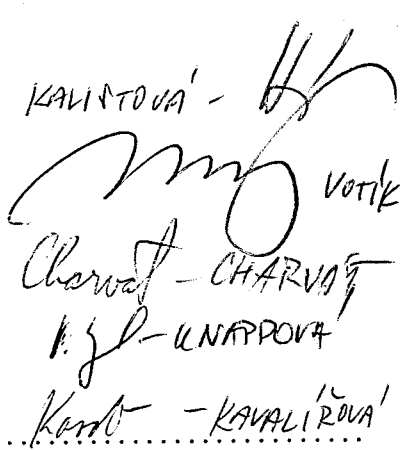 KALISTOVÁ -
VOTÍK
Charvát - CHARVÁT
- KNAPPOVÁ
- KAVALÍŘOVÁ